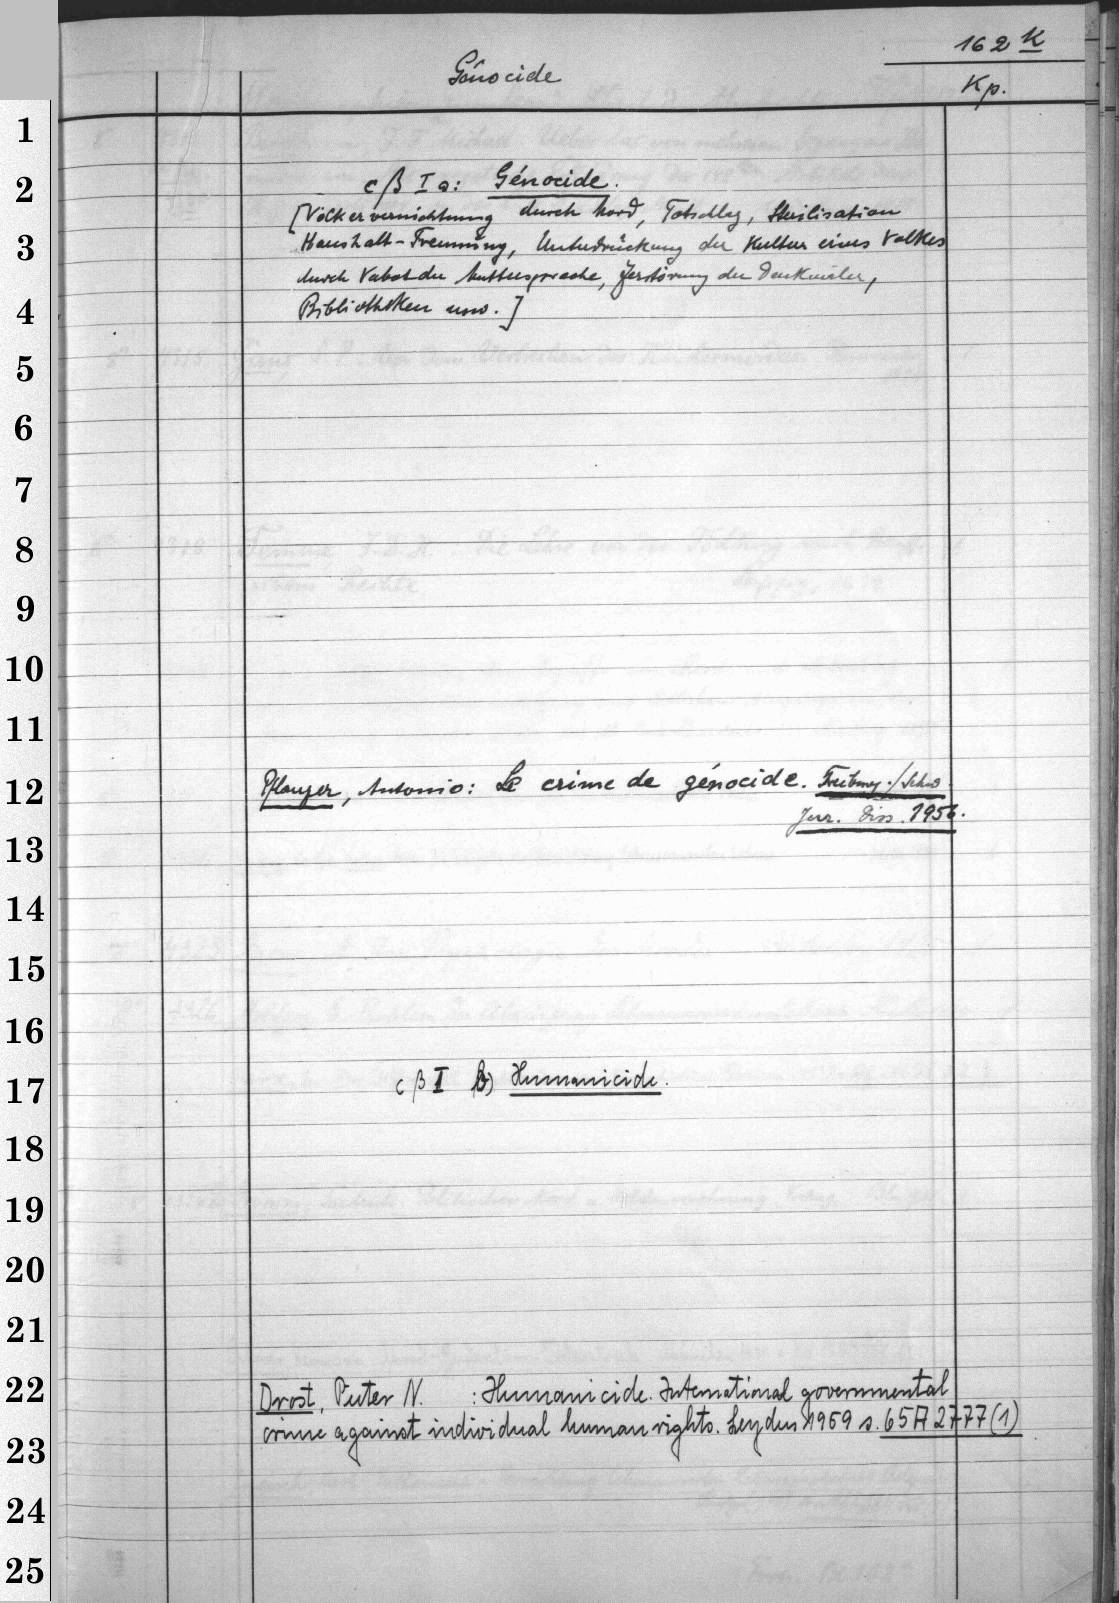 162 K
Génocide
Kp.
1
2
3
4
5
6
7
8
9
10
11
12
13
14
15
16
17
18
19
20
21
22
23
24
25
c β I a: Génocide.
[Völkervernichtung durch Mord, Totschlag, Sterilisation
Haushalt-Trennung, Unterdrückung der Kultur eines Volkes
durch Verbot der Muttersprache, Zerstörung der Denkmäler,
Bibliotheken usw.]
Pflanzer, Antonio: Le crime de génocide. Freiburg/Schw.
Jur. Diss. 1956.
c β I b) Humanicide.
Drost, Pieter N. : Humanicide. International governmental
crime against individual human rights. Leyden 1959 s. 65 A 2777 (1)